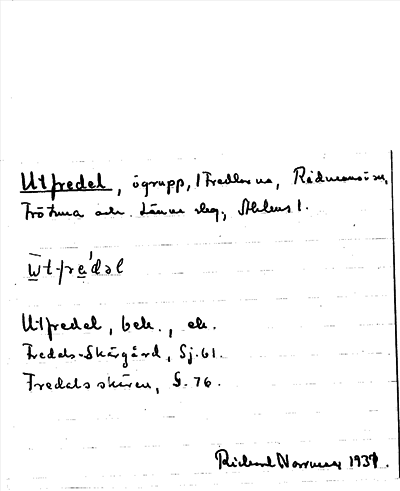 Utfredel, ögrupp, 1 Fredlarna, Rådmansö sn,
Frötuna och Länna skg, Stklens l.
w̅t-fre'dəl
Utfredel, bek., ek.
Fredels-Skärgård, Sj. 61.
Fredels skären, G. 76.
Rickard Norrman 1937.